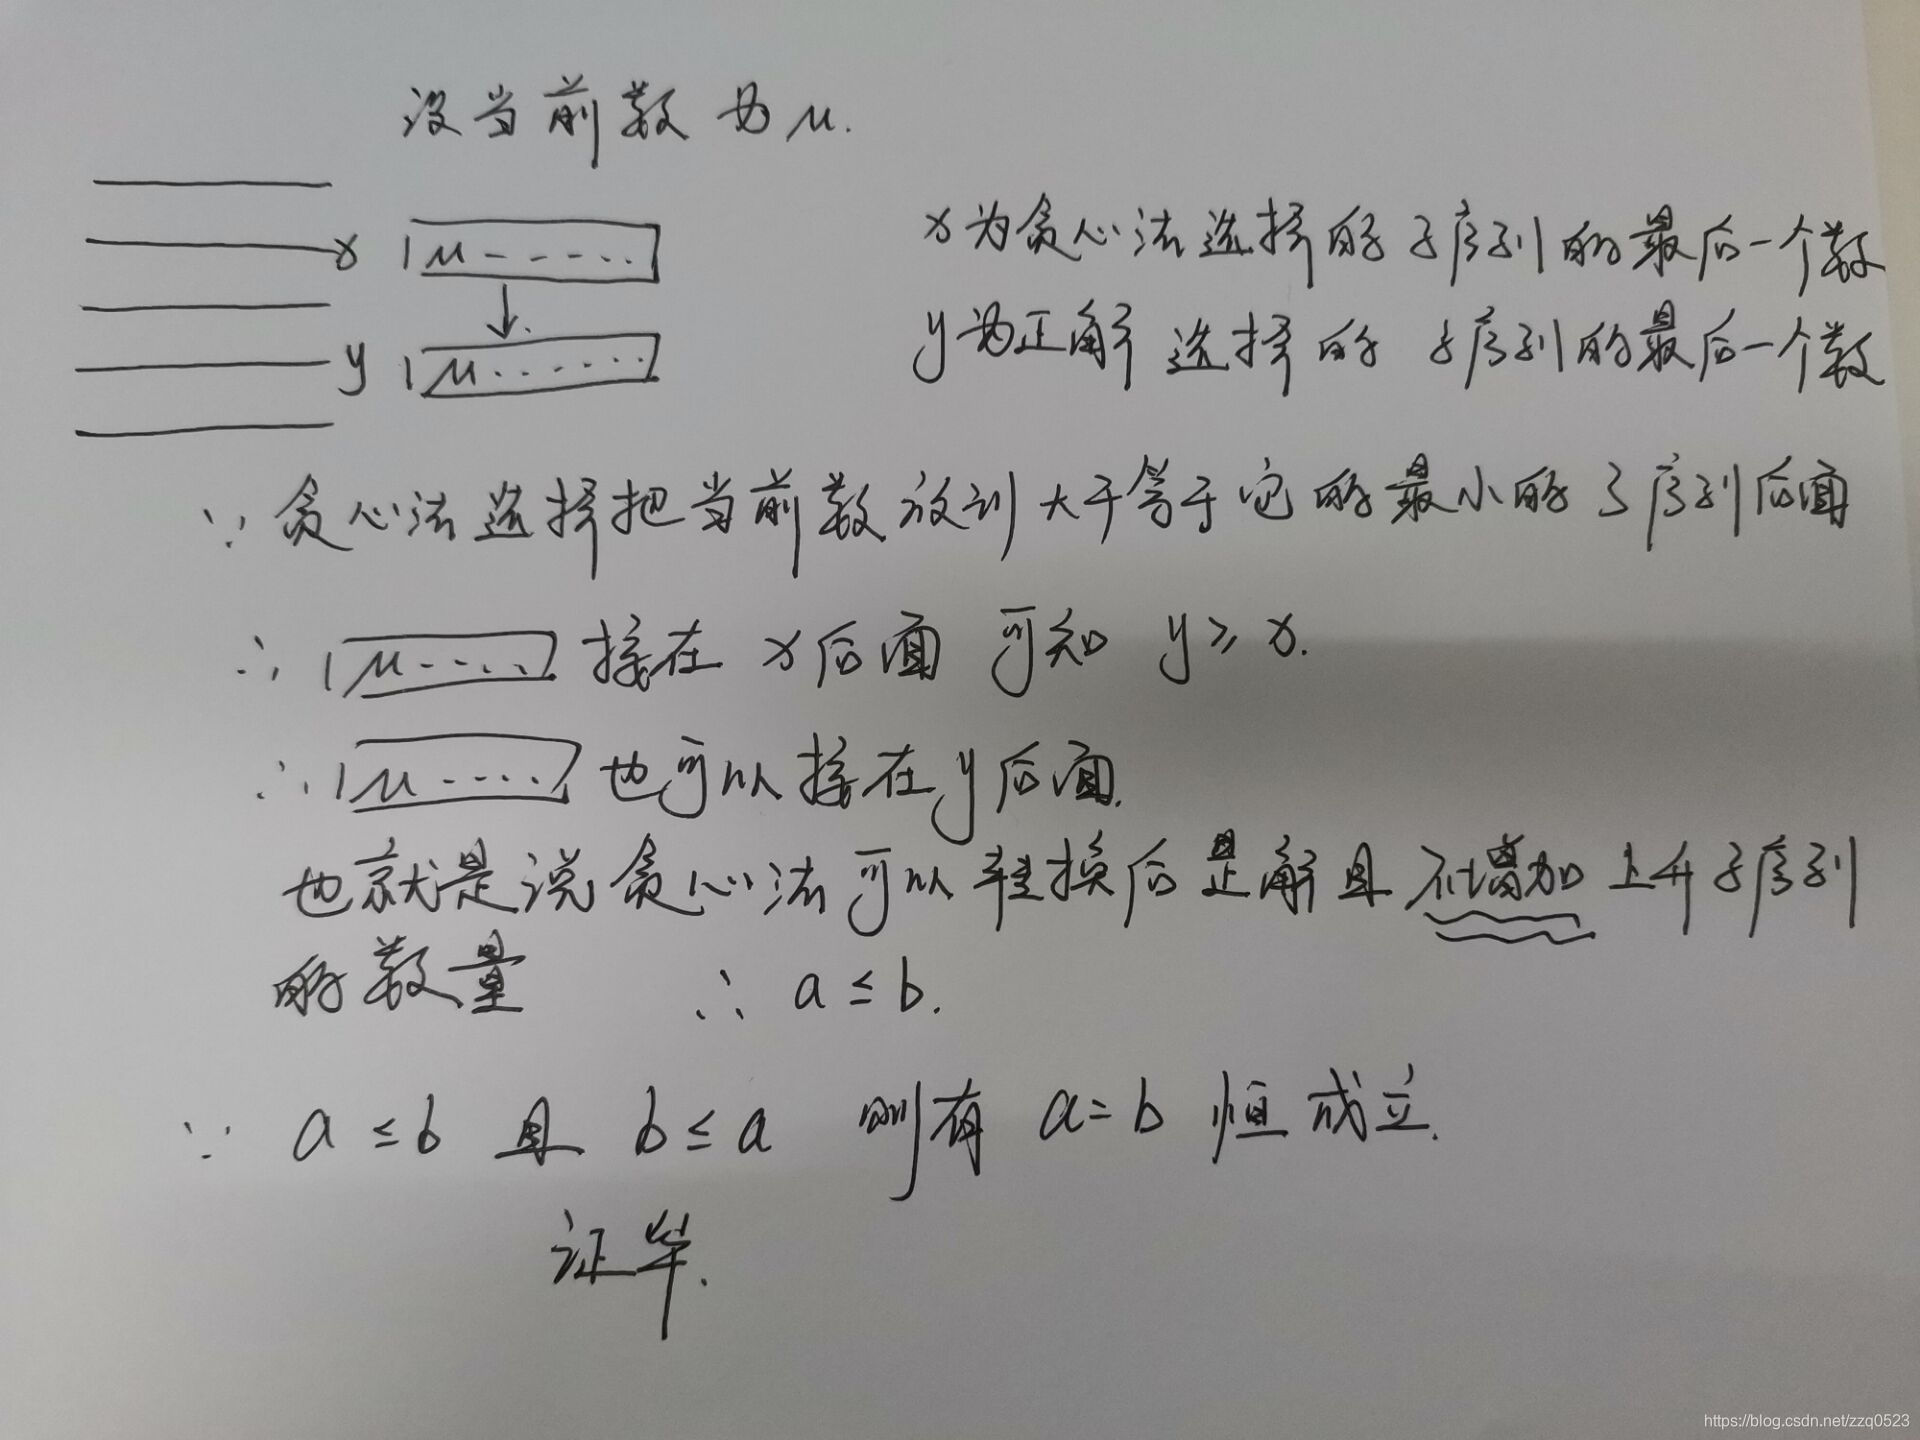 设当前数为u.
x |u - - - ....
x为贪心法选择的子序列的最后一个数
y |u . . . . . .
y为正解 选择的 子序列的最后一个数
∵ 贪心法选择把当前数放到大于等于它的最小的子序列后面
∴ |u..... 接在 x后面 可知 y≥x.
∴ |u..... 也可以接在y后面.
也就是说贪心法可以转换后是解且不增加上升子序列
的数量 ∴ a≤b.
∵ a≤b 且 b≤a 则有 a=b 恒成立.
证毕.
https://blog.csdn.net/zzq0523